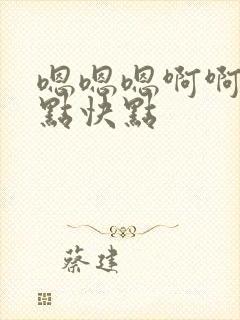 嗯嗯嗯啊啊
點快點
蔡建